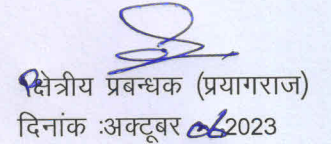 क्षेत्रीय प्रबन्धक (प्रयागराज)
दिनांक :अक्टूबर 06 2023